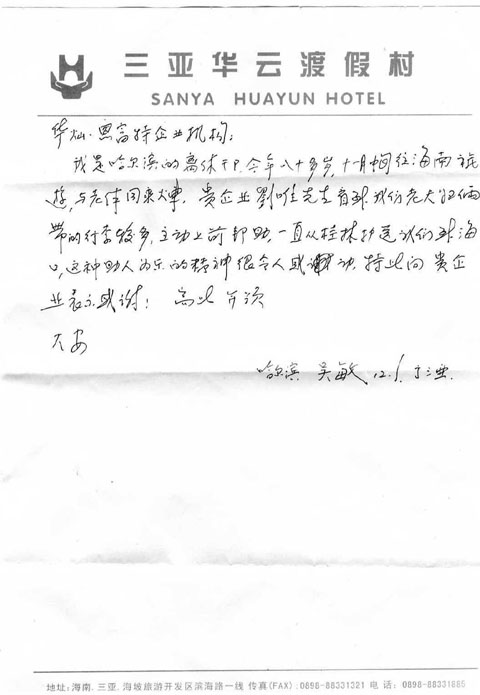 三亚华云渡假村
SANYA HUAYUN HOTEL
华灿·奥富特企业机构：
我是哈尔滨的离休干部，今年八十多岁，十月中旬往海南旅
游，与老伴同乘火车。贵企业刘唯先生看到我们老夫妇俩
带的行李较多，主动上前帮助，一直从桂林护送我们到海
口，这种助人为乐的精神很令人感动，特此向贵企
业表示感谢！ 高此 并颂
大安
哈尔滨 吴敏 12.1. 于三亚.
地址：海南．三亚．海坡旅游开发区滨海路一线 传真(FAX)：0898-88331321 电话：0898-88331885